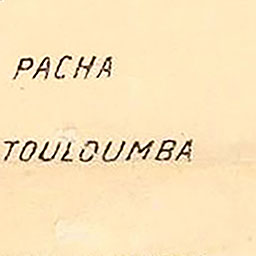 PACHA
TOULOUMBA